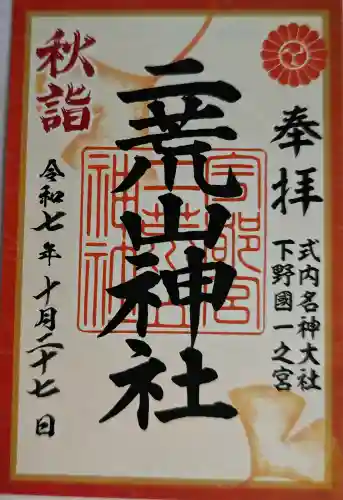 奉拝
式内名神大社
下野國一之宮
二荒山神社
秋詣
令和七年十月二十七日